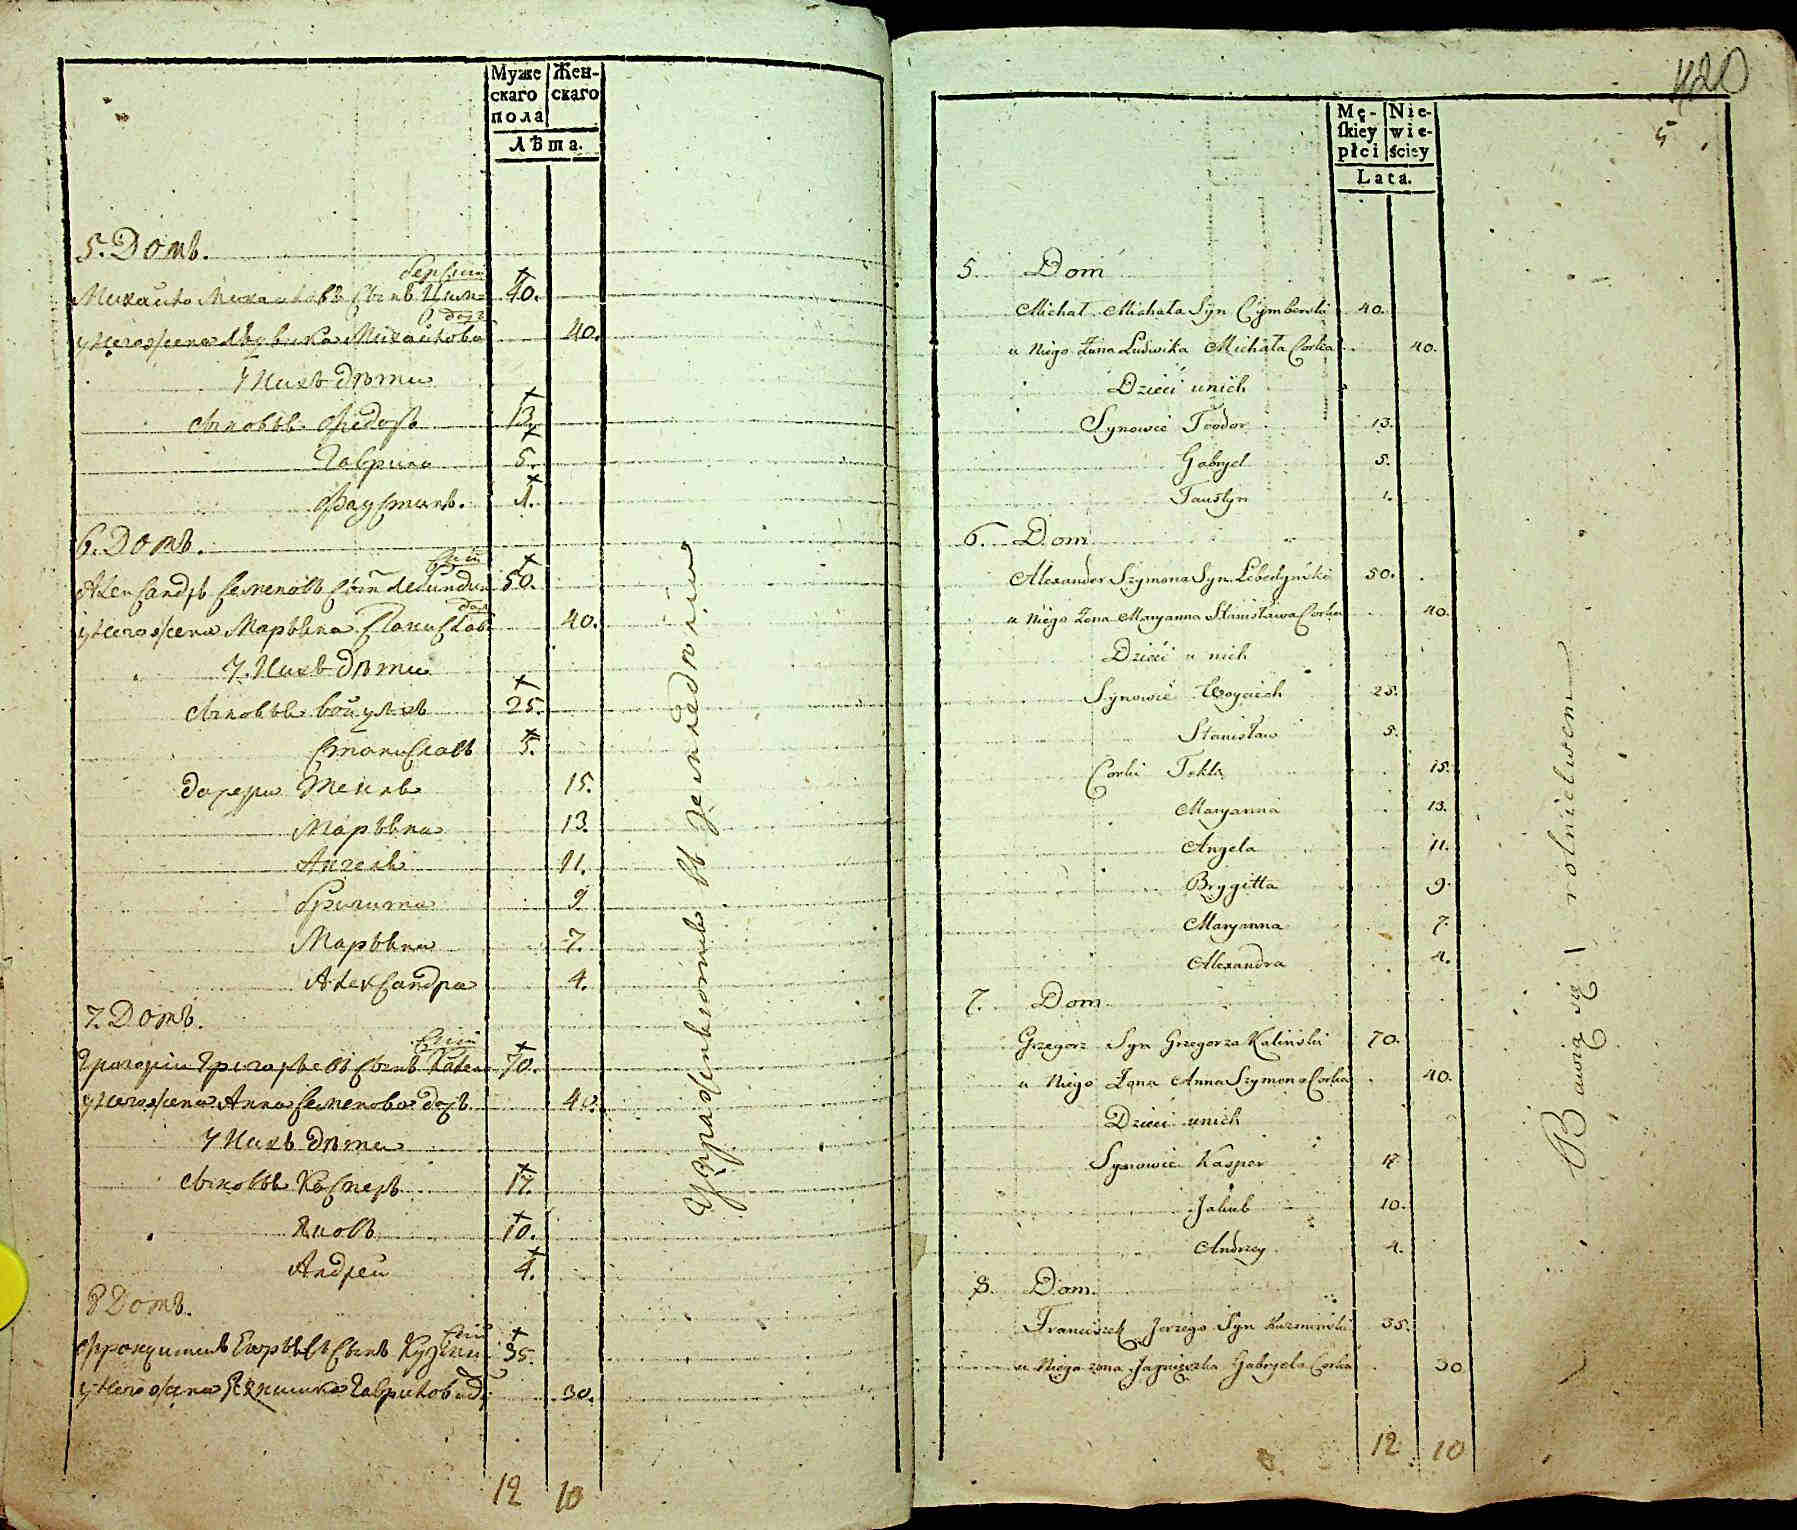 Муже Жен-
скаго скаго
пола
Лѣта.
5. Домъ.
берскій
Михайло Михайловъ Сынъ Цим- 40.
дочь
у Него жена Людвика Михайлова 40.
У Нихъ дѣти
сыновья Федоръ 13.
Гаврило 5.
Фаустинъ. 1.
6. Домъ.
скій
Александръ Семеновъ Сынъ Лебиндзи 50.
дочь
у Него жена Марьяна Станислав: 40.
У Нихъ дѣти
сыновья Войцехъ 25.
Станиславъ 5.
дочери Текля 15.
Марьяна 13.
Ангеля 11.
Бригита 9
Марьяна 7.
Александра 4.
7. Домъ.
скій
Григорій Григорьевъ Сынъ Кален 70.
у Него жена Анна Семенова дочь 40.
У Нихъ дѣти
сыновья Касперъ 17.
Яковъ 10.
Андрей 4.
8 Домъ.
скій
Францишекъ Егорьевъ Сынъ Кузмин 35.
у Него жена Ягнишка Гаврилова Д: 30.
12 10
Упражняются въ земледѣліи
420
5
Mę- Nie-
ſkiey wie-
płci ściey
Lata.
5. Dom
Michał Michała Syn Cymberski 40.
u Niego Żona Ludwika Michała Corka 40.
Dzieci u nich
Synowie Teodor 13.
Gabryel 5.
Faustyn 1.
6. Dom
Alexander Szymona Syn Lebedzyński 50.
u Niego Żona Maryanna Stanisława Corka 40.
Dzieci u nich
Synowie Woyciech 25.
Stanisław 5.
Corki Tekla 15.
Maryanna 13.
Angela 11.
Brygitta 9.
Maryanna 7.
Alexandra 4.
7. Dom
Grzegorz Syn Grzegorza Kaliński 70.
u Niego Żona Anna Szymona Corka 40.
Dzieci u nich
Synowie Kasper 17
Jakub 10.
Andrzey 4.
8. Dom.
Franciszek Jerzego Syn Kuzminski 35.
u Niego żona Jagnieszka Gabryela Corka 30
12 10
Bawią się rolnictwem